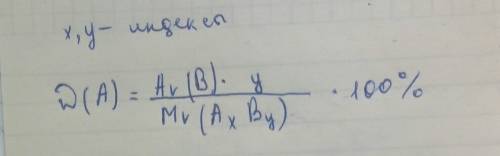 x, y - индексы
D(A) = Av(B) · y / Mv(AxBy) · 100%